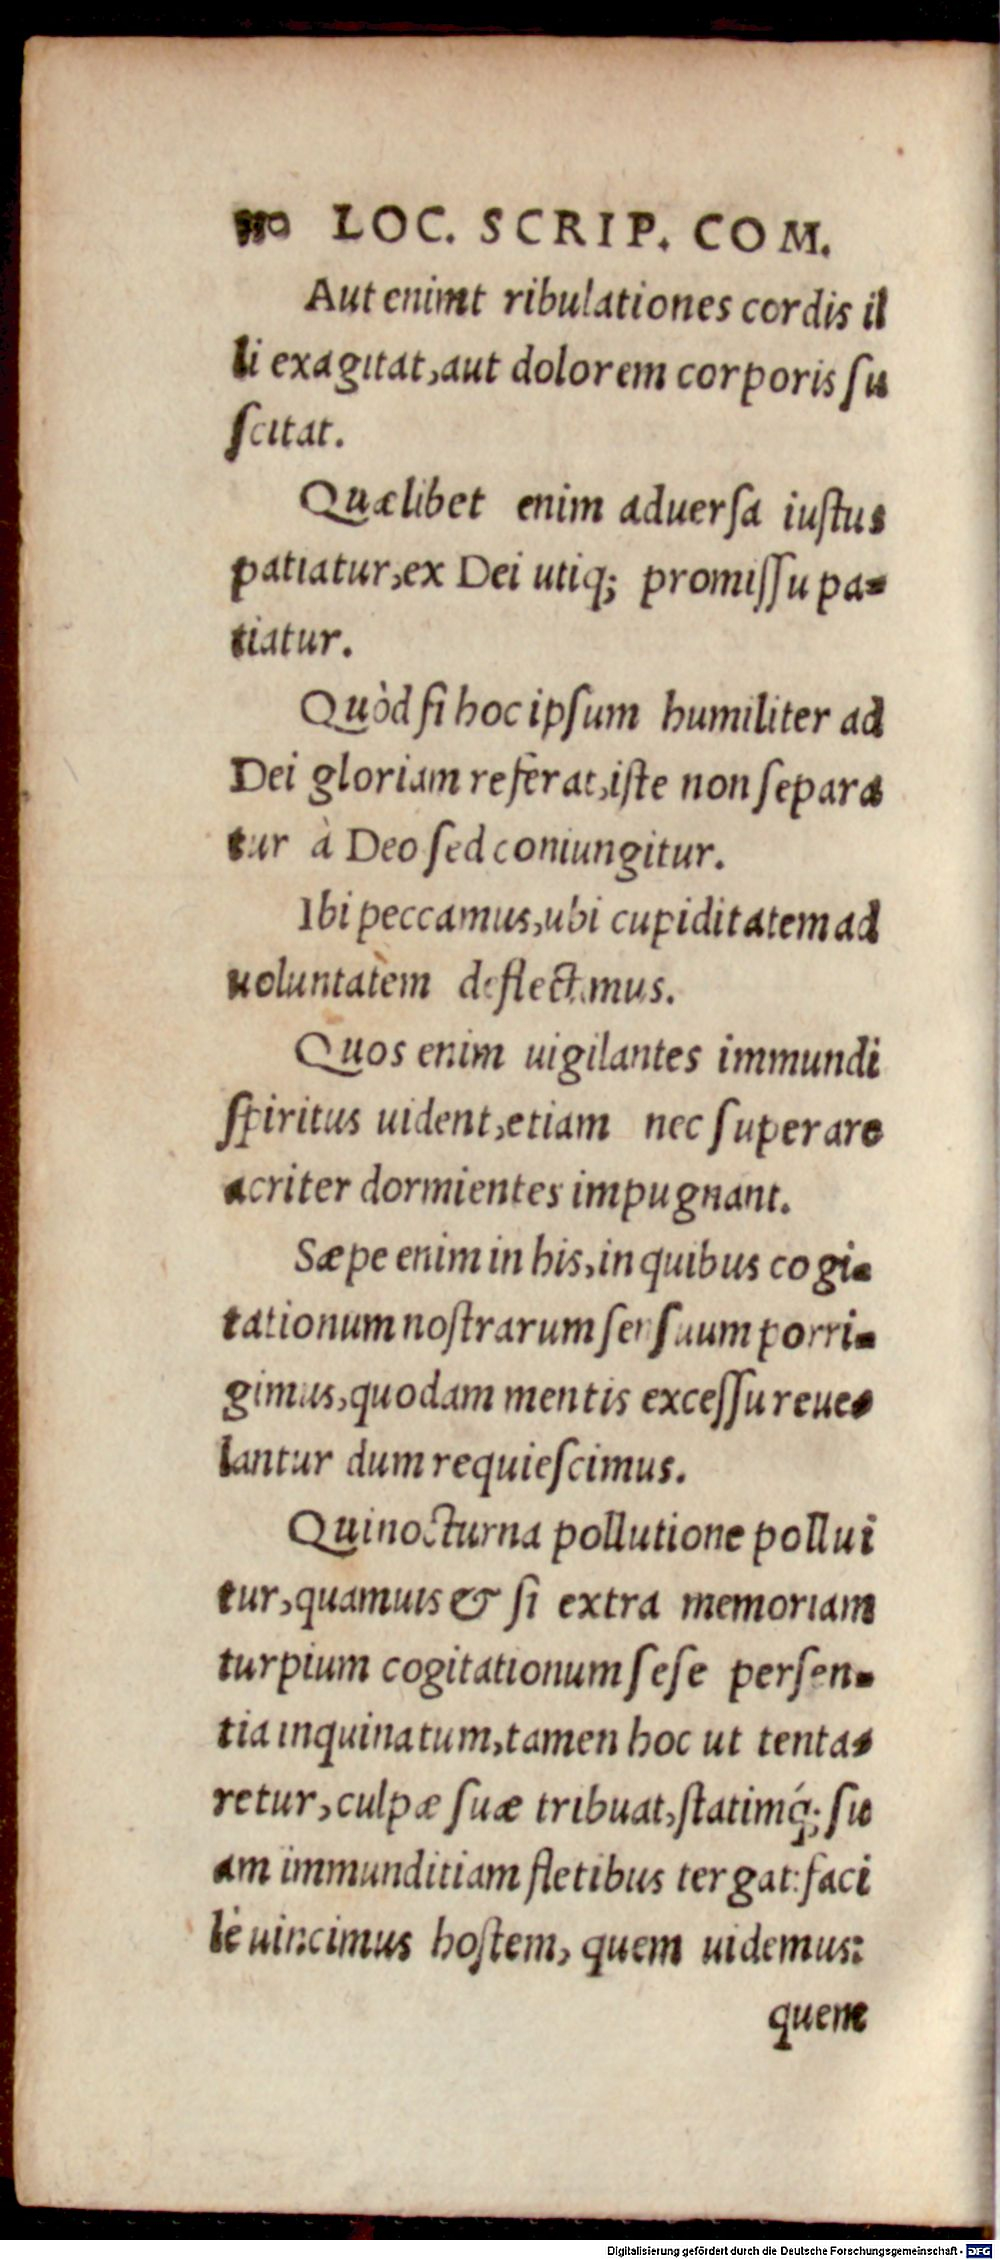 LOC. SCRIP. COM.
Aut enimt ribulationes cordis il
li exagitat, aut dolorem corporis su
scitat.
Quælibet enim aduersa iustus
patiatur, ex Dei utiq; promissu pa-
tiatur.
Quòd si hoc ipsum humiliter ad
Dei gloriam referat, iste non separa
tur à Deo sed coniungitur.
Ibi peccamus, ubi cupiditatem ad
uoluntatem deflectimus.
Quos enim uigilantes immundi
spiritus uident, etiam nec superare
acriter dormientes impugnant.
Sæpe enim in his, in quibus cogi-
tationum nostrarum sensuum porri-
gimus, quodam mentis excessu reue-
lantur dum requiescimus.
Qui nocturna pollutione pollui
tur, quamuis & si extra memoriam
turpium cogitationum sese persen-
tia inquinatum, tamen hoc ut tenta-
retur, culpæ suæ tribuat, statimq́; su
am immunditiam fletibus tergat: faci
lè uincimus hostem, quem uidemus:
quem
Digitalisierung gefördert durch die Deutsche Forschungsgemeinschaft - DFG